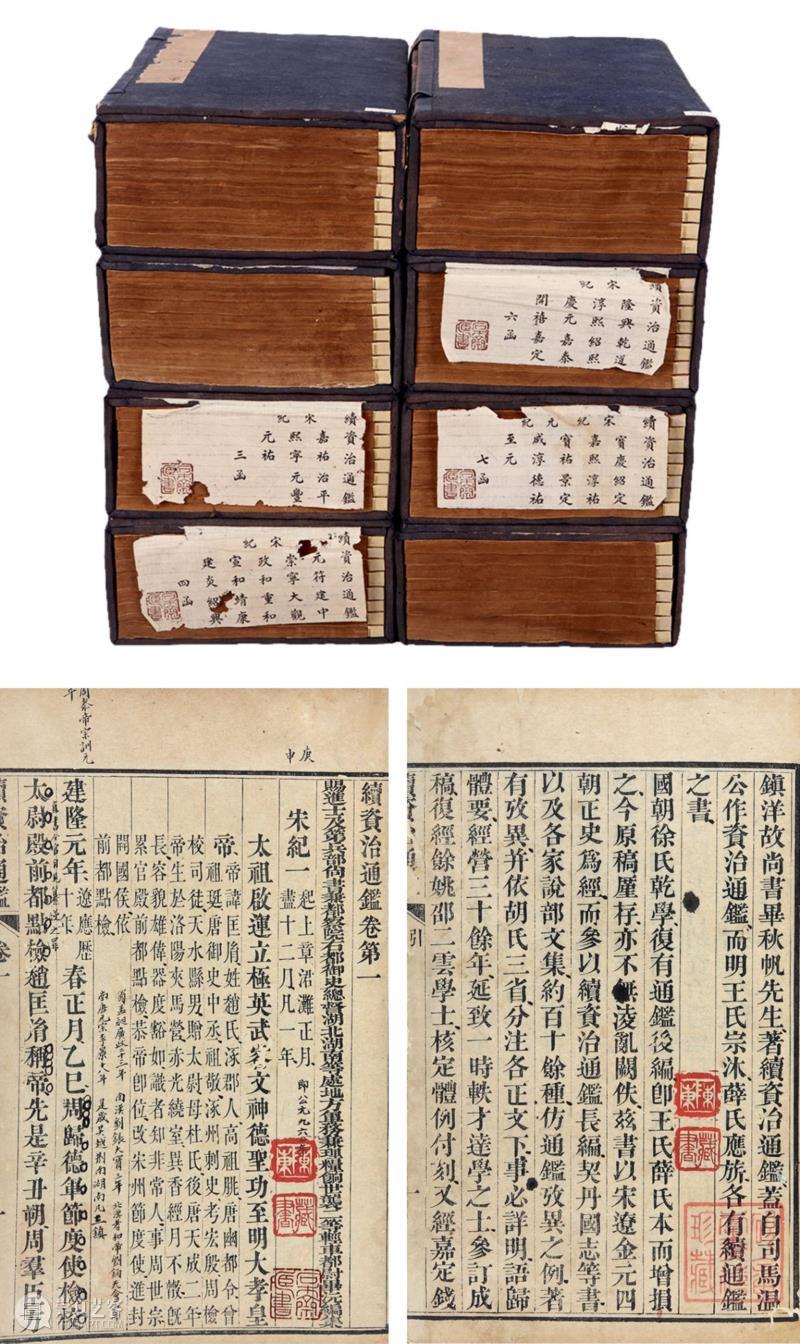 續資治通鑑
宋紀
隆興乾道
淳熙紹熙
慶元嘉泰
開禧嘉定
六函
續資治通鑑
宋紀
嘉祐治平
熙寧元豐
元祐
三函
續資治通鑑
宋紀 元紀
寶慶紹定
嘉熙淳祐
寶祐景定
咸淳德祐
至元
七函
續資治通鑑
宋紀
元符建中
崇寧大觀
政和重和
宣和靖康
建炎紹興
四函
鎮洋故尚書畢秋帆先生著續資治通鑑蓋自司馬溫
公作資治通鑑而明王氏宗沐薛氏應旂各有續通鑑
之書
國朝徐氏乾學復有通鑑後編卽王氏薛氏本而增損
之今原稿厪存亦不無淩亂闕佚玆書以宋遼金元四
朝正史爲經而參以續資治通鑑長編契丹國志等書
以及各家說部文集約百十餘種仿通鑑攷異之例著
有攷異幷依胡氏三省分注各正文下事必詳明語歸
體要經營三十餘年延致一時軼才達學之士參訂成
稿復經餘姚邵二雲學士核定體例付刻又經嘉定錢
引
東
藏
書
珍藏
庚申
續資治通鑑卷第一
宋紀一 起上章涒灘正月盡十二月凡一年
卽公元九六〇年
太祖啟運立極英武文神德聖功至明大孝皇
帝 帝諱匡胤姓趙氏涿郡人高祖朓唐幽都令曾
祖珽唐御史中丞祖敬涿州刺史考宏殷周檢
校司徒天水縣男贈太尉母杜氏後唐天成二年
帝生於洛陽夾馬營赤光繞室異香經月不散旣
長容貌雄偉器度豁如識者知非常人事周世宗
累官殿前都點檢恭帝卽位改宋州節度使進封
開國侯依
前都點檢
建隆元年 遼應歷十年 春正月乙巳周歸德軍節度使檢校
太尉殿前都點檢趙匡胤稱帝先是辛丑朔周羣臣方
續資治通鑑 卷一
東
藏
書